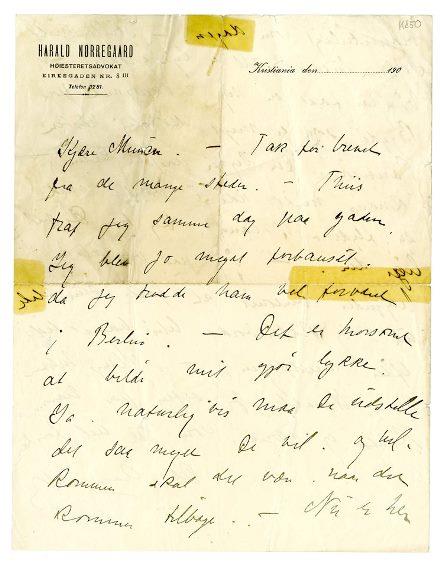 K 850
Kragen
HARALD NØRREGAARD
HØIESTERETSADVOKAT
KIRKEGADEN NR. 8 III
Telefon 9281.
Kristiania den 190
Kjære Munch. — Tak for brevet
fra de mange steder. — Thiis
traf jeg samme dag paa gaden.
Jeg blev jo meget forbauset,
da jeg trodde ham vel forvaret
i Berlin. — Det er morsomt
at bildet mit gjør lykke.
Ja naturligvis maa De udstille
det saa meget De vil. og vel-
kommen skal det være naar det
kommer tilbage. — Nu er her